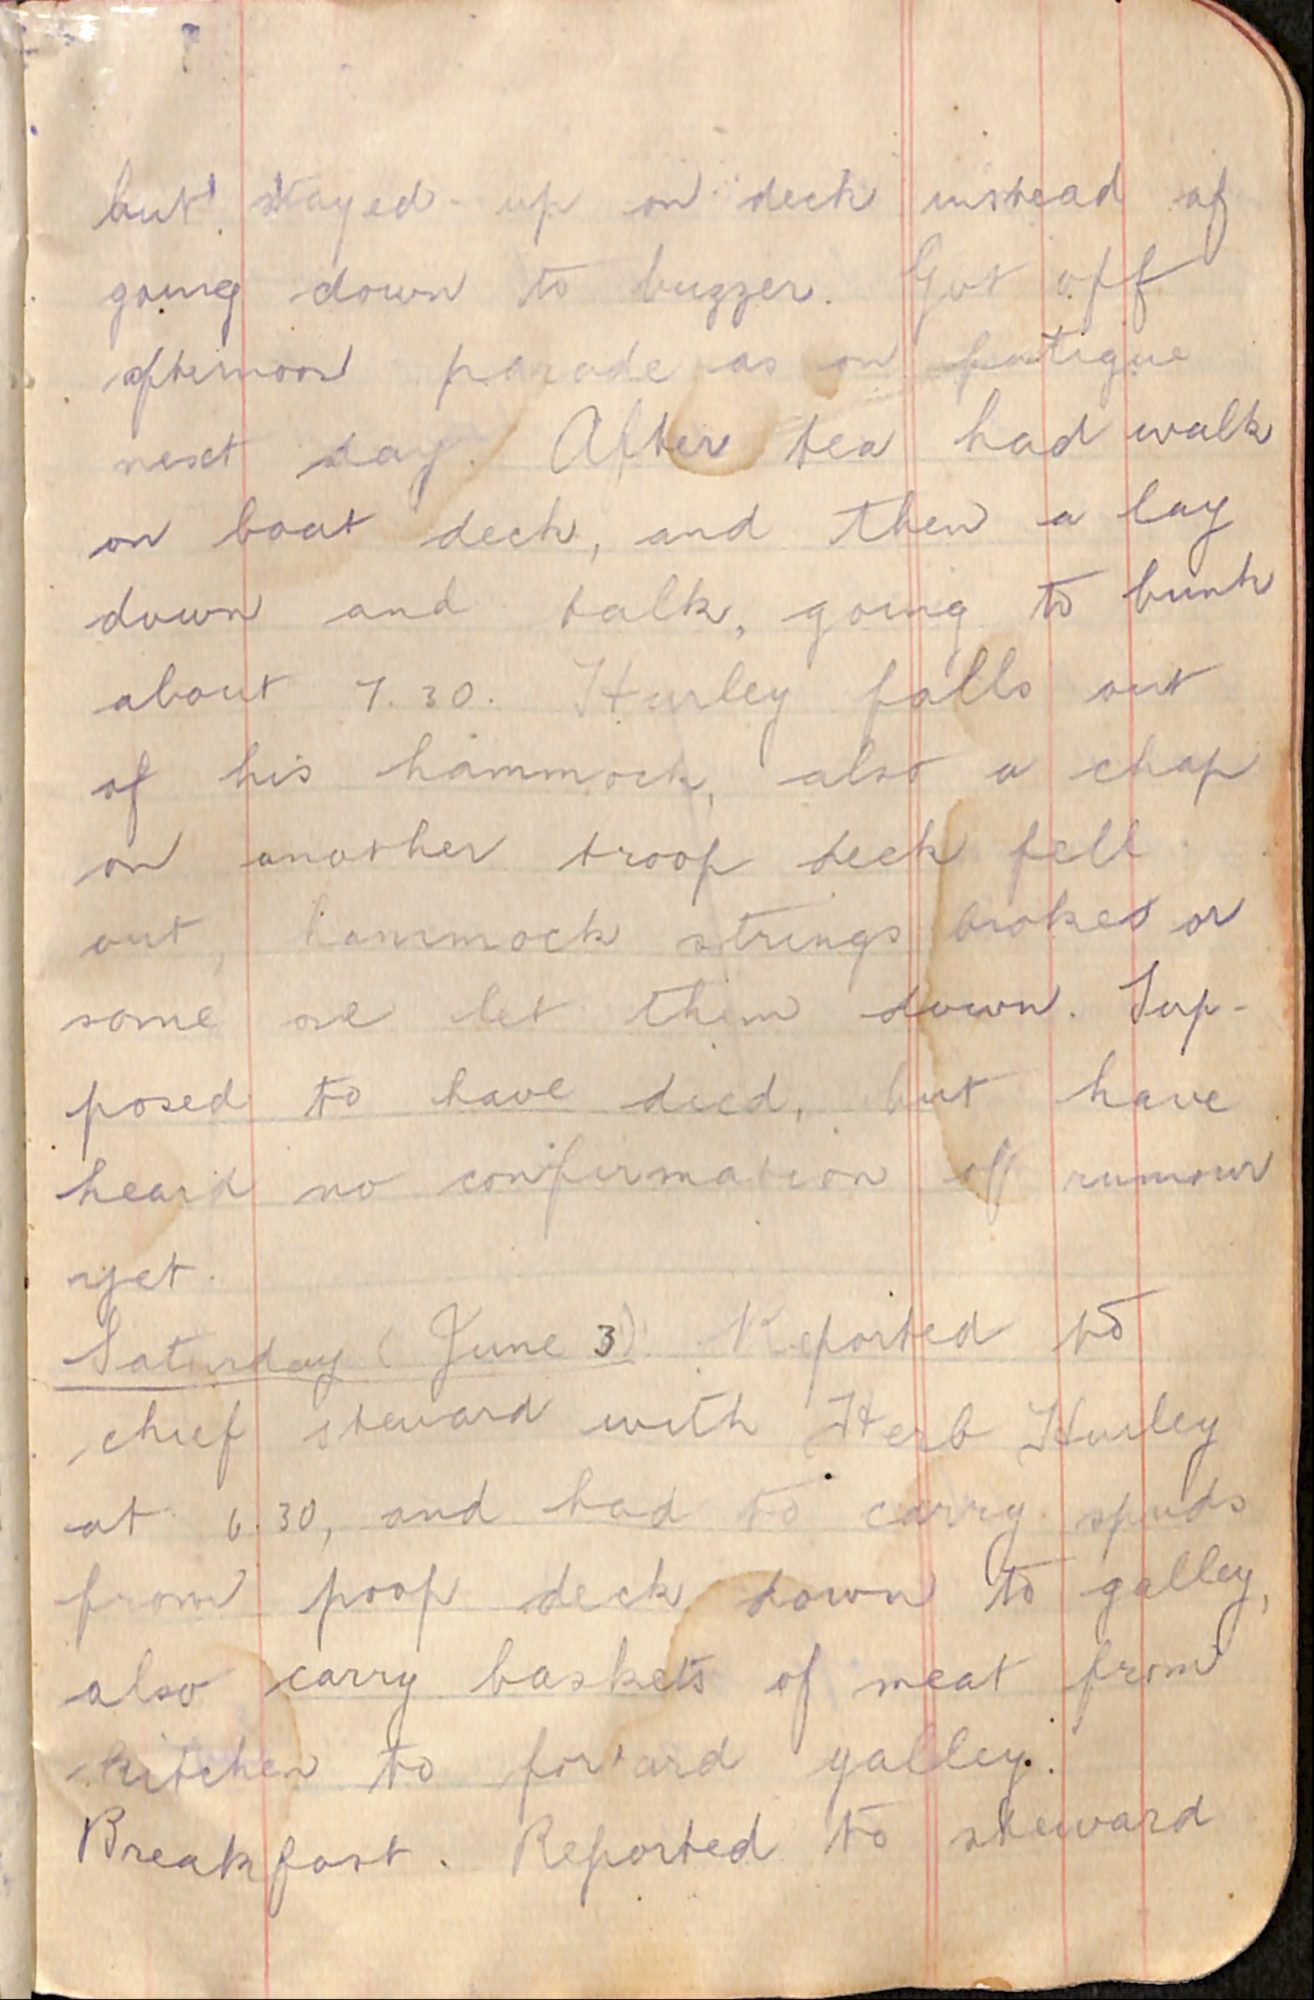 but stayed up on deck instead of
going down to buzzer. Got off
afternoon parade as on fatigue
next day. After tea had walk
on boat deck, and then a lay
down and talk, going to bunk
about 7.30. Hurley falls out
of his hammock, also a chap
on another troop deck fell
out, hammock strings brokes or
some one let them down. Sup-
posed to have died, but have
heard no confirmation of rumour
yet.
Saturday (June 3) Reported to
chief steward with Herb Hurley
at 6.30, and had to carry spuds
from poop deck down to galley,
also carry baskets of meat from
kitchen to forward galley.
Breakfast. Reported to steward